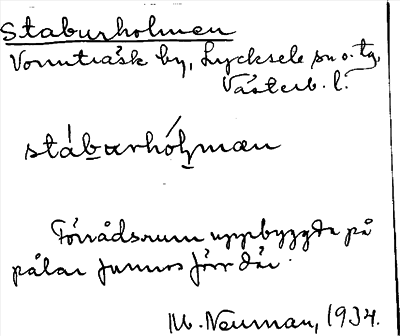 Staburholmen
Vormträsk by, Lycksele sn o. tg,
Västerb. l.
stáburhólmæn
Förrådsrum uppbyggda på
pålar funnos förr där.
M. Neuman, 1934.